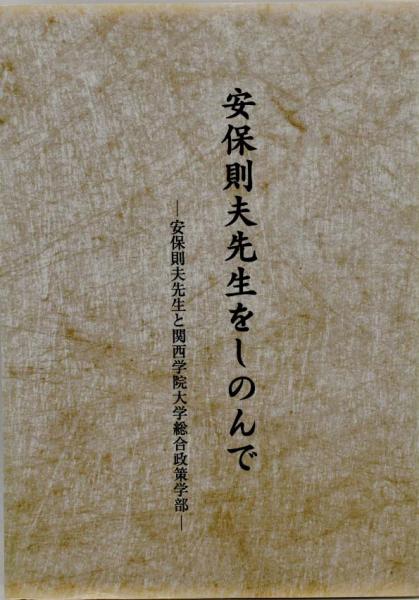 安保則夫先生をしのんで
―安保則夫先生と関西学院大学総合政策学部―